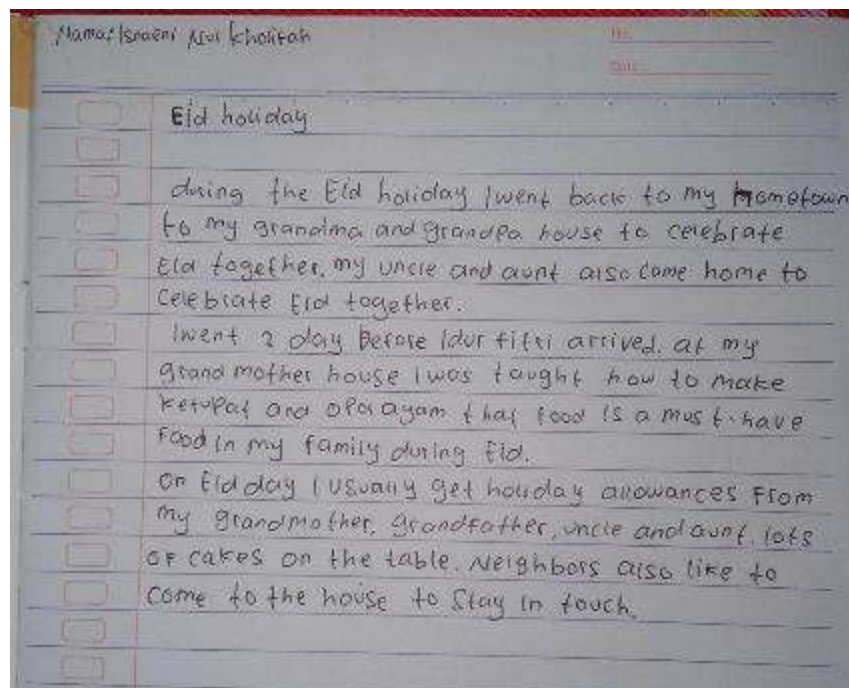 Nama: Isnaeni Nur Kholifah
No.
Date:
Eid holiday
during the Eid holiday I went back to my hometown
to my grandma and grandpa house to celebrate
Eid together. my uncle and aunt also come home to
celebrate Eid together.
I went 2 day before Idur fitri arrived. at my
grand mother house I was taught how to make
ketupat and opor ayam that food is a must-have
food in my family during Eid.
on Eid day I usually get holiday allowances from
my grandmother, grandfather, uncle and aunt. lots
of cakes on the table. Neighbors also like to
come to the house to stay in touch.